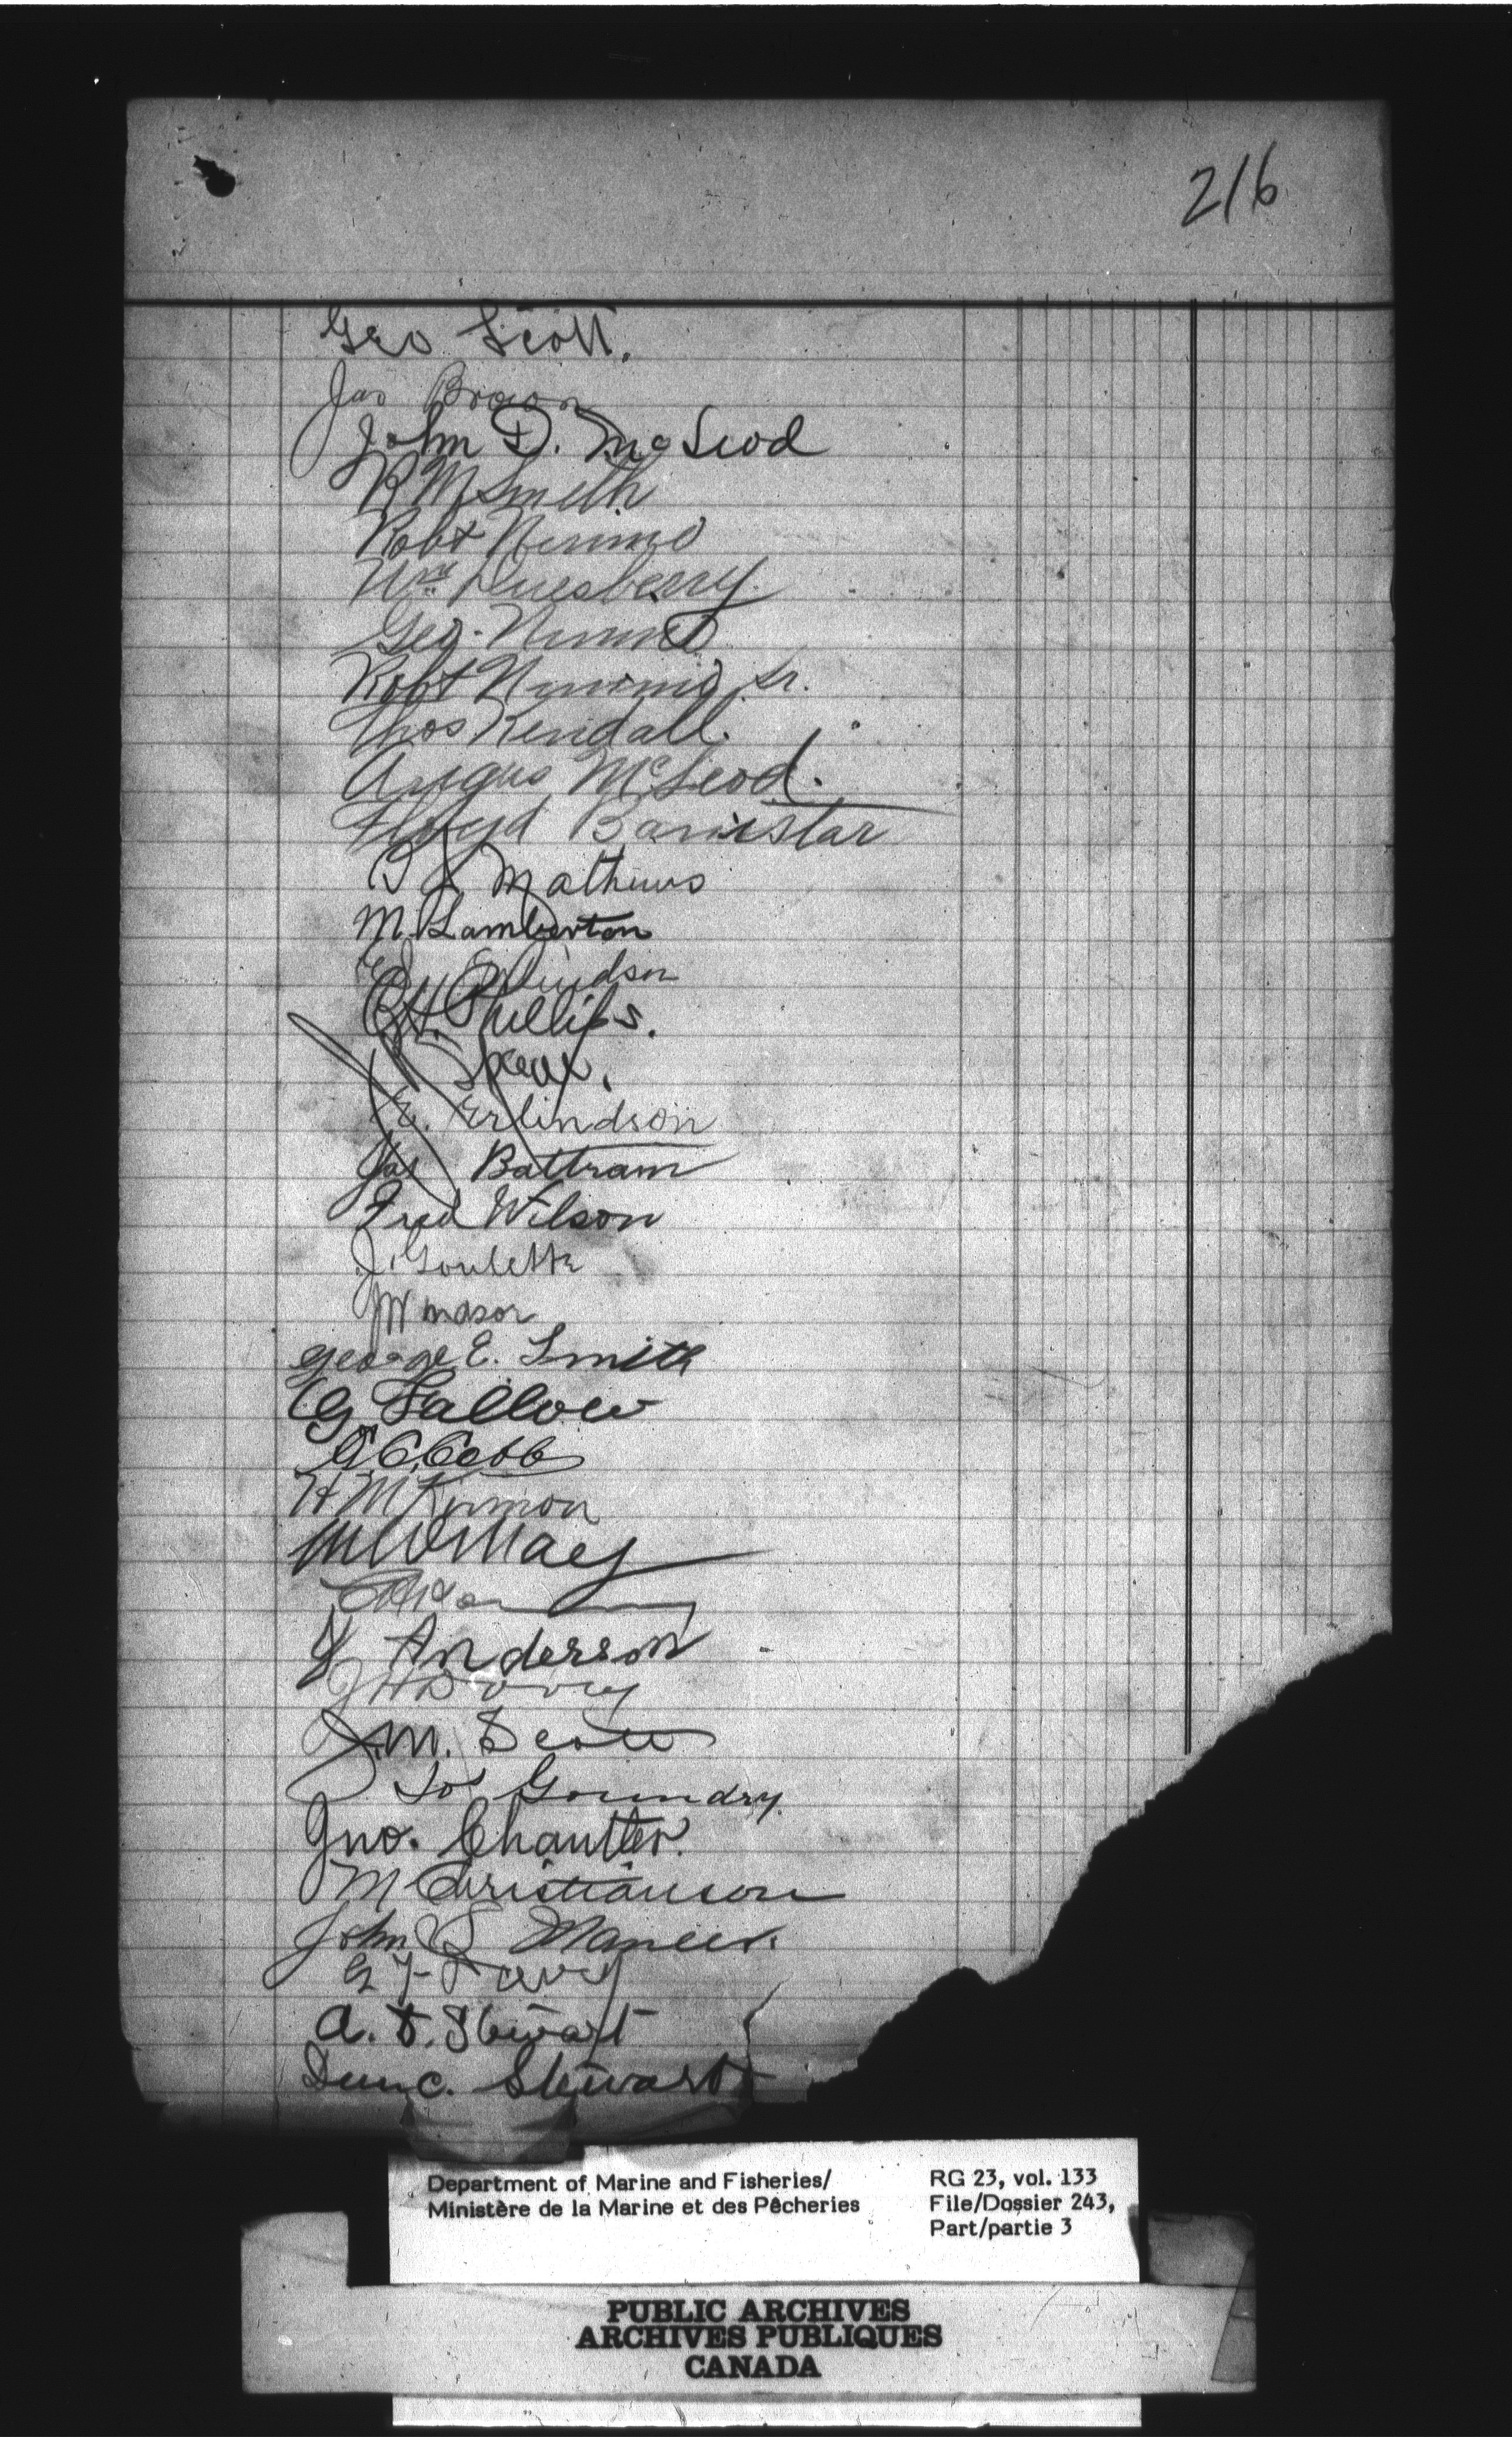 216
Geo Scott.
Jas Brown
John D. McLeod
R M Smith
Robt Nimmo
Wm Duesberry.
Geo. Nimmo
Robt Nimmo, Sr.
Thos Kendall.
Angus McLeod.
Floyd Banistar
Mathews
M. Lamberton
Erlindson
Phillips.
E. Erlindson
Jas Battram
Fred Wilson
J. Goulette
George E. Smith
G Fallow
G C Cobb
H McKinnon
Anderson
J.M. Scott
Goundry.
Jno. Chantler.
M Christianson
John
A. D. Stewart
Dunc. Stewart
Department of Marine and Fisheries/
Ministère de la Marine et des Pêcheries
RG 23, vol. 133
File/Dossier 243,
Part/partie 3
PUBLIC ARCHIVES
ARCHIVES PUBLIQUES
CANADA